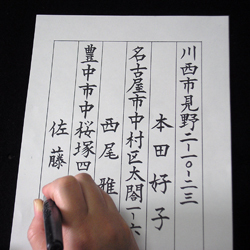 川西市見野二-一〇-二三
本田好子
名古屋市中村区太閤一-六
西尾雅
豊中市中桜塚四
佐藤